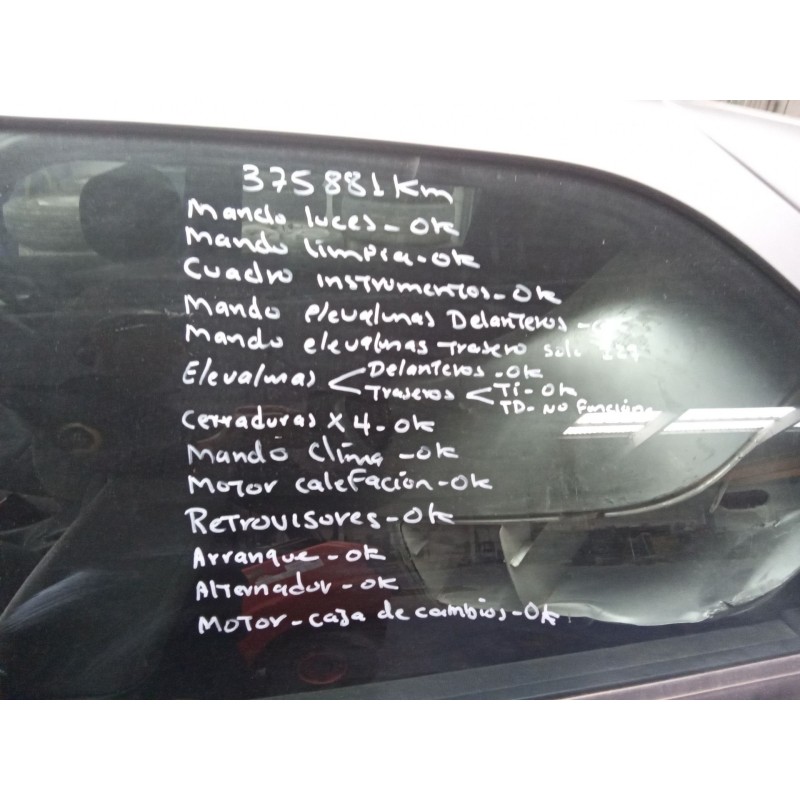 375881 Km
Mando luces - OK
Mando limpia - OK
Cuadro instrumentos - OK
Mando elevalunas Delanteros -
Mando elevalunas Trasero solo
Elevalunas < Delanteros - OK
Traseros < TI - OK
TD - No funciona
Cerraduras X 4 - OK
Mando Clima - OK
Motor calefacion - OK
Retrovisores - OK
Arranque - OK
Alternador - OK
Motor - caja de cambios - OK